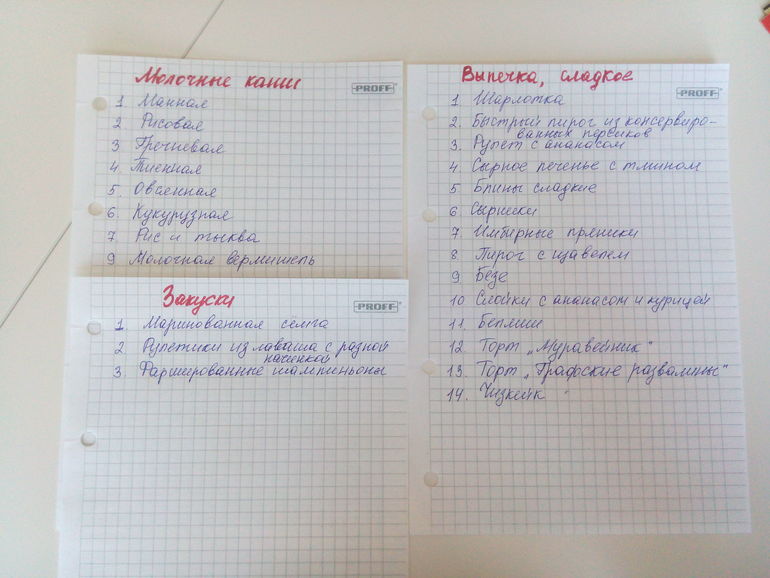 Молочные каши
PROFF
1 Манная
2 Рисовая
3 Гречневая
4. Пшенная
5 Овсенная
6. Кукурузная
7 Рис и тыква
9 Молочная вермишель
Закуски
PROFF
1. Маринованная сёмга
2 Рулетики из лаваша с разной
начинкой
3. Фаршированные шампиньоны
Выпечка, сладкое
PROFF
1. Шарлотка
2. Быстрый пирог из консервиро-
ванных персиков
3. Рулет с ананасом
4 Сырное печенье с тмином
5 Блины сладкие
6 Сырники
7 Имбирные пряники
8 Пирог с щавелем
9 Безе
10 Слойки с ананасом и курицей
11. Беляши
12. Торт „Муравейник"
13. Торт „Графские развалины"
14. Чизкейк